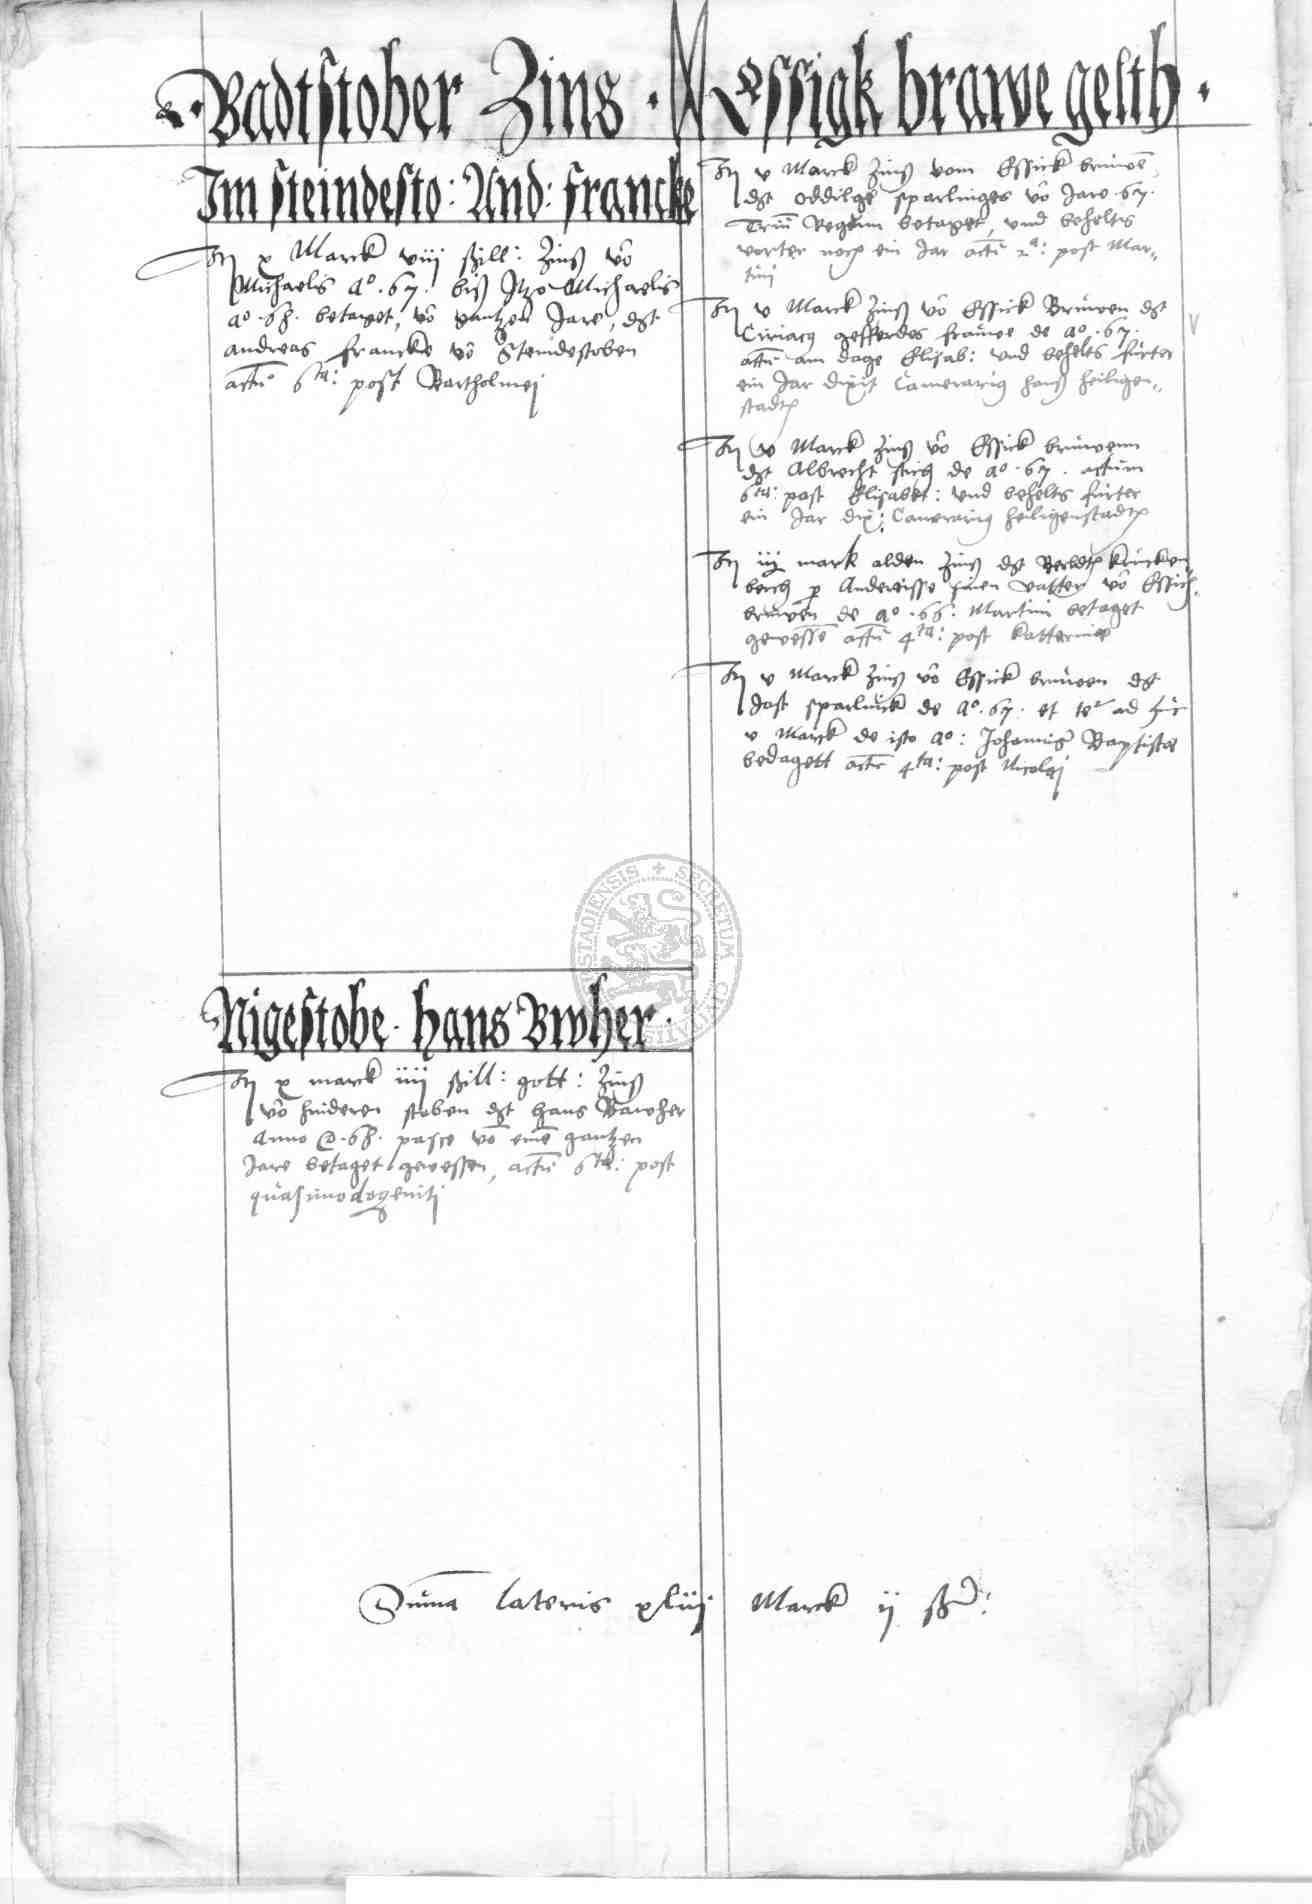 Badtstober Zins ·
Im steindesto: And: francke
It x Marck viij ßill: Zinß vō
Michaelis a° · 67 · biß Itzo Michaelis
a° · 68 · betaget, vō gantzen Jare, dζt
andreas francke vō Steindestoben
actū 6ta: post Bartholmej
Nigestobe · hans Bwher ·
It x marck iiij ßill: gott: Zinß
vō hinderen stoben dζt hans Bawher
Anno 68 · pasce vō eine gantzen
Jare betaget gewessen, actū 6ta: post
quasimodogenitj
Essigk brawe gelth ·
It v Marck Zinß vom Essick bruwē,
dζt oddilge sparlinges vō Jare 67 ·
Triū Regum betaget, vnd behelts
vorter noch ein Jar actū 2a: post Mar„
tinj
It v Marck Zinß vō Essick Bruwen dζt
Ciriacq gefferdes frauwe de a° · 67 ·
actū am dage Elisab: vnd behelts furter
ein Jar dixit Camerariq hanß heiligen„
stadt
It v Marck Zinß vō Essick bruwenn
dζt Albrecht de a° · 67 · actum
6ta: post Elisabet: vnd behelts furter
ein Jar dix: Camerariq heiligenstadt
It iij mark alden Zinß dζt krucken
berch p Anderisse sinen vatter vō Essick
bruwen de a° · 66 · Martini betaget
gewessē actū 4ta: post katterine
It v Marck Zinß vō Essick bruwen dζt
Jost sparlinck de a° · 67 · et ad
v Marck de isto a°: Johannis Baptiste
bedagett actū 4ta: post Nicolaj
Suma lateris xliij Marck ij ß:
SECRETUM CIVITATIS STADIENSIS